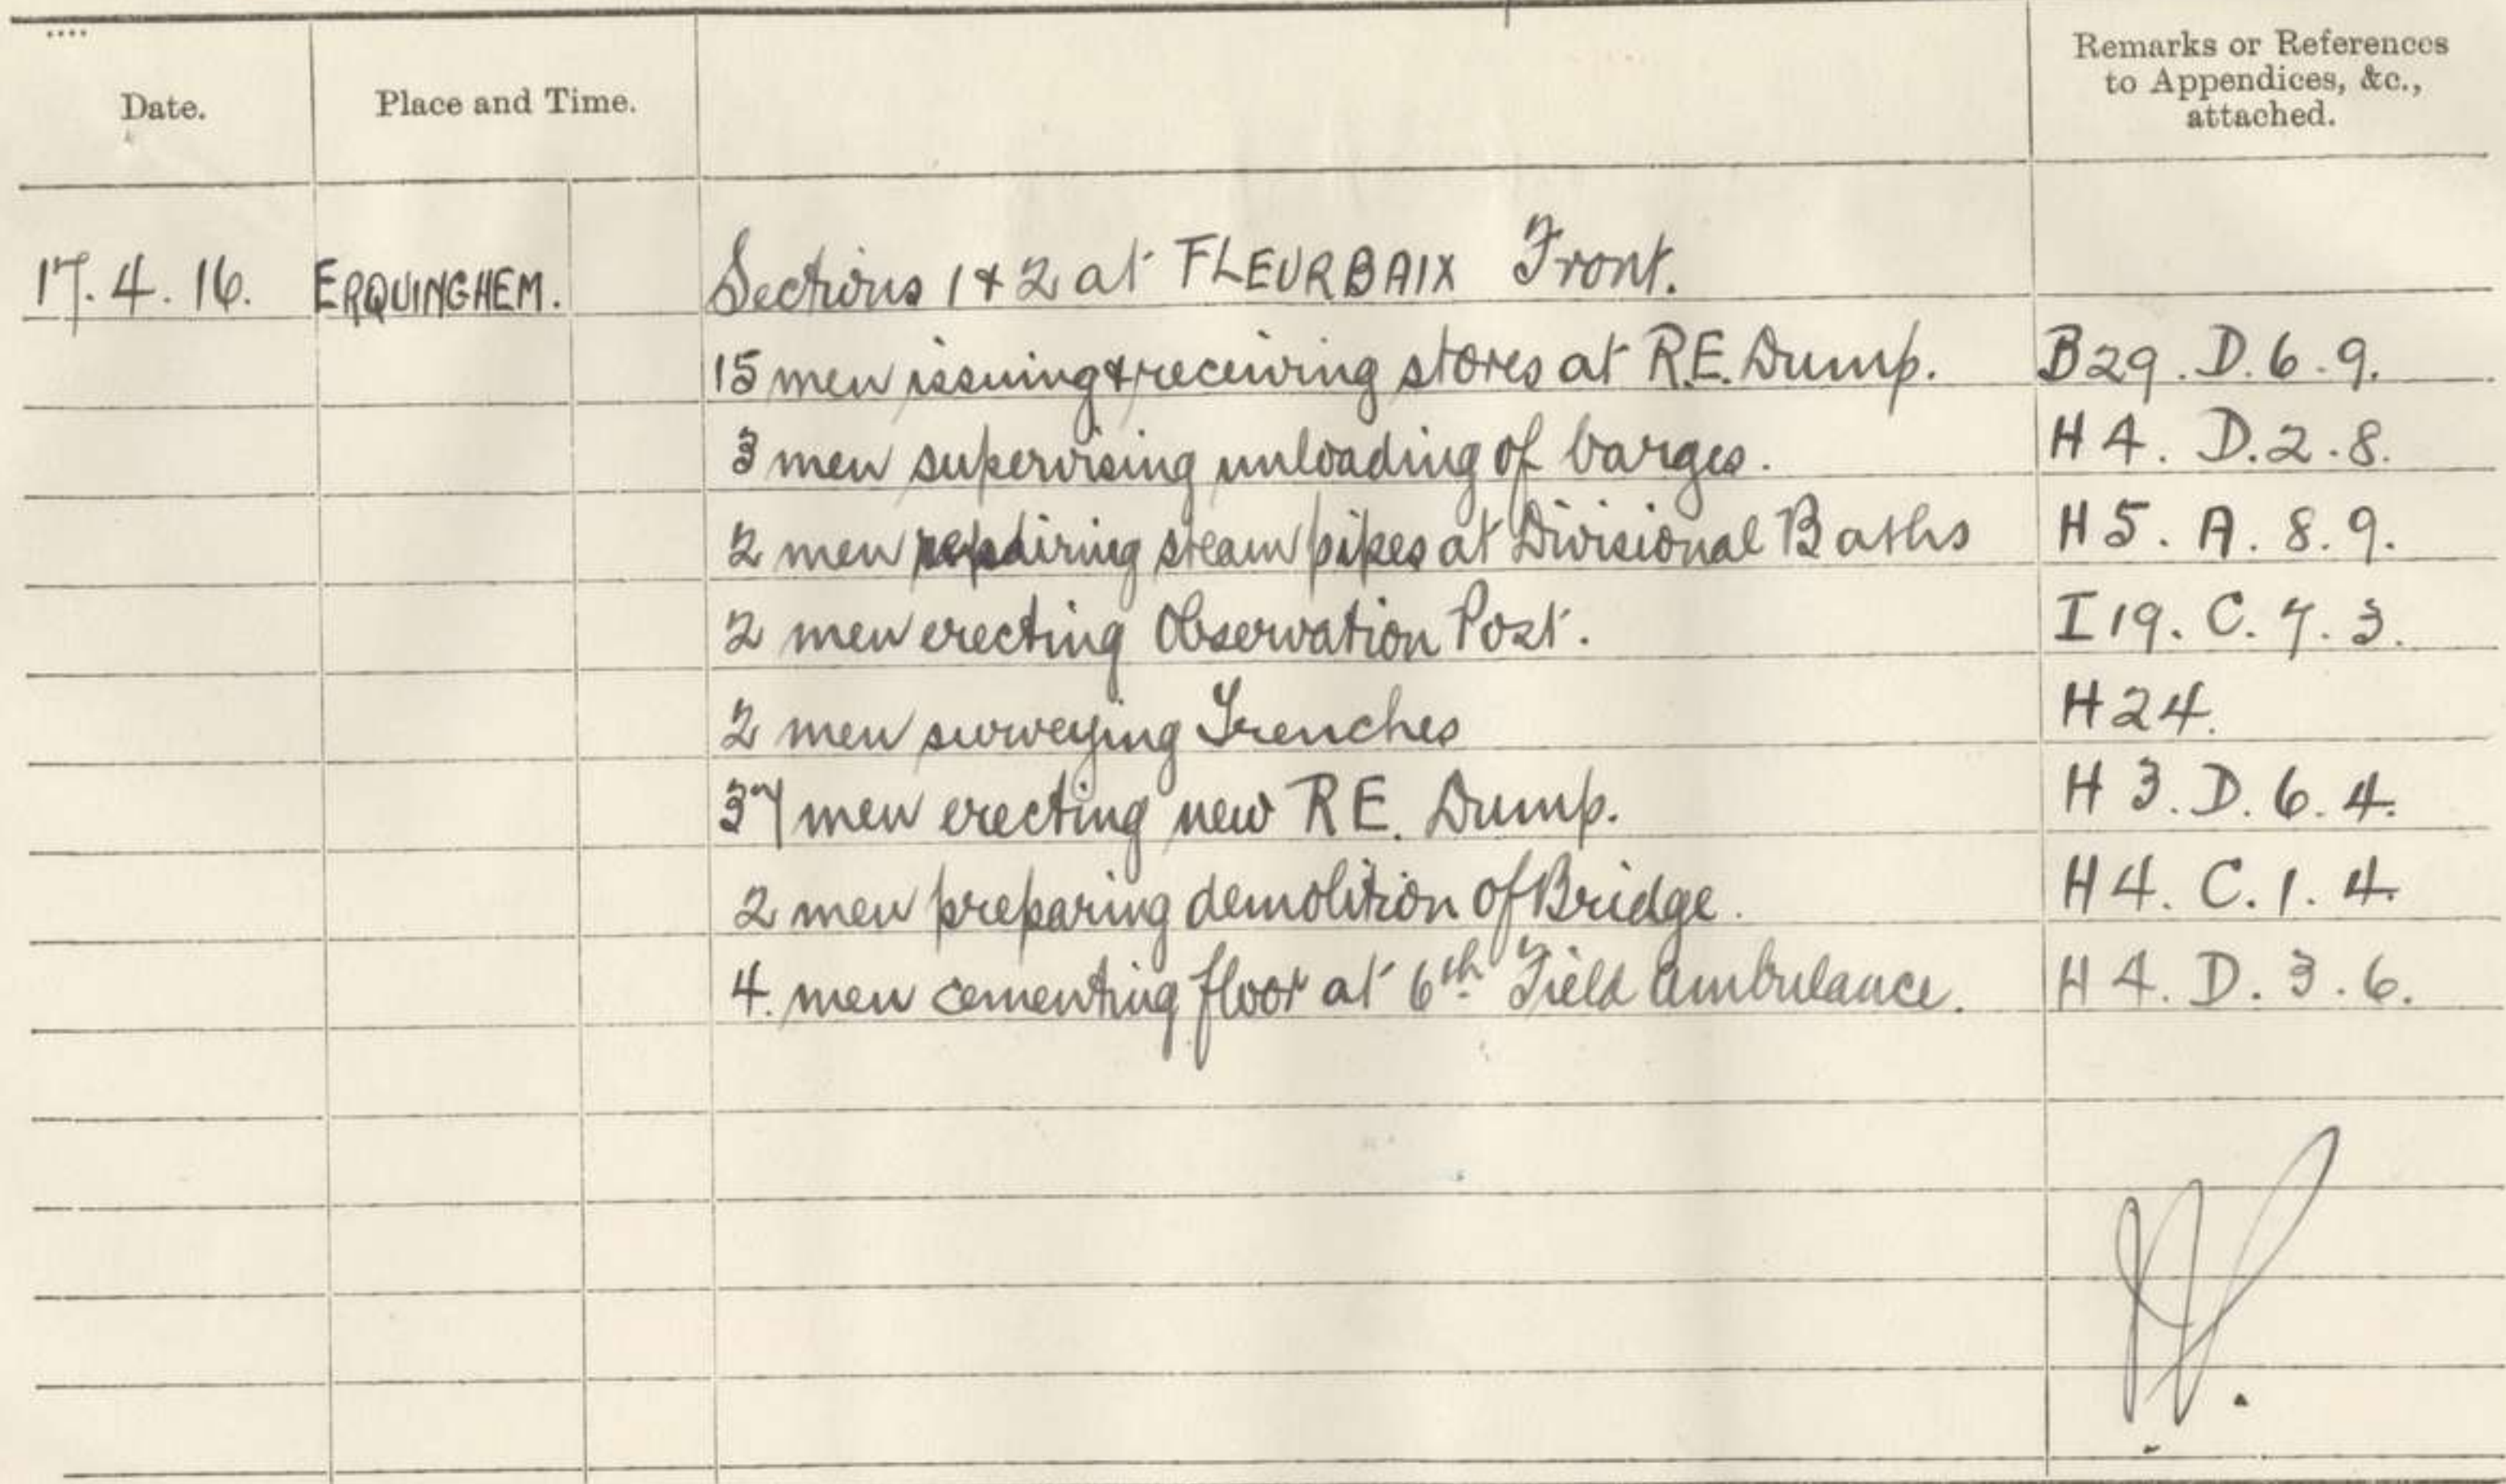 Date.
Place and Time.
Remarks or References
to Appendices, &c.,
attached.
17. 4. 16. ERQUINGHEM. Sections 1 & 2 at FLEURBAIX Front.
15 men issuing & receiving stores at R.E. Dump. B29. D. 6. 9.
3 men supervising unloading of barges. H 4. D. 2. 8.
2 men repairing steam pipes at Divisional Baths H 5. A. 8. 9.
2 men erecting Observation Post. I 19. C. 7. 3.
2 men surveying Trenches H 24.
37 men erecting new R E. Dump. H 3. D. 6. 4.
2 men preparing demolition of Bridge. H 4. C. 1. 4.
4. men cementing floor at 6th Field Ambulance. H 4. D. 3. 6.